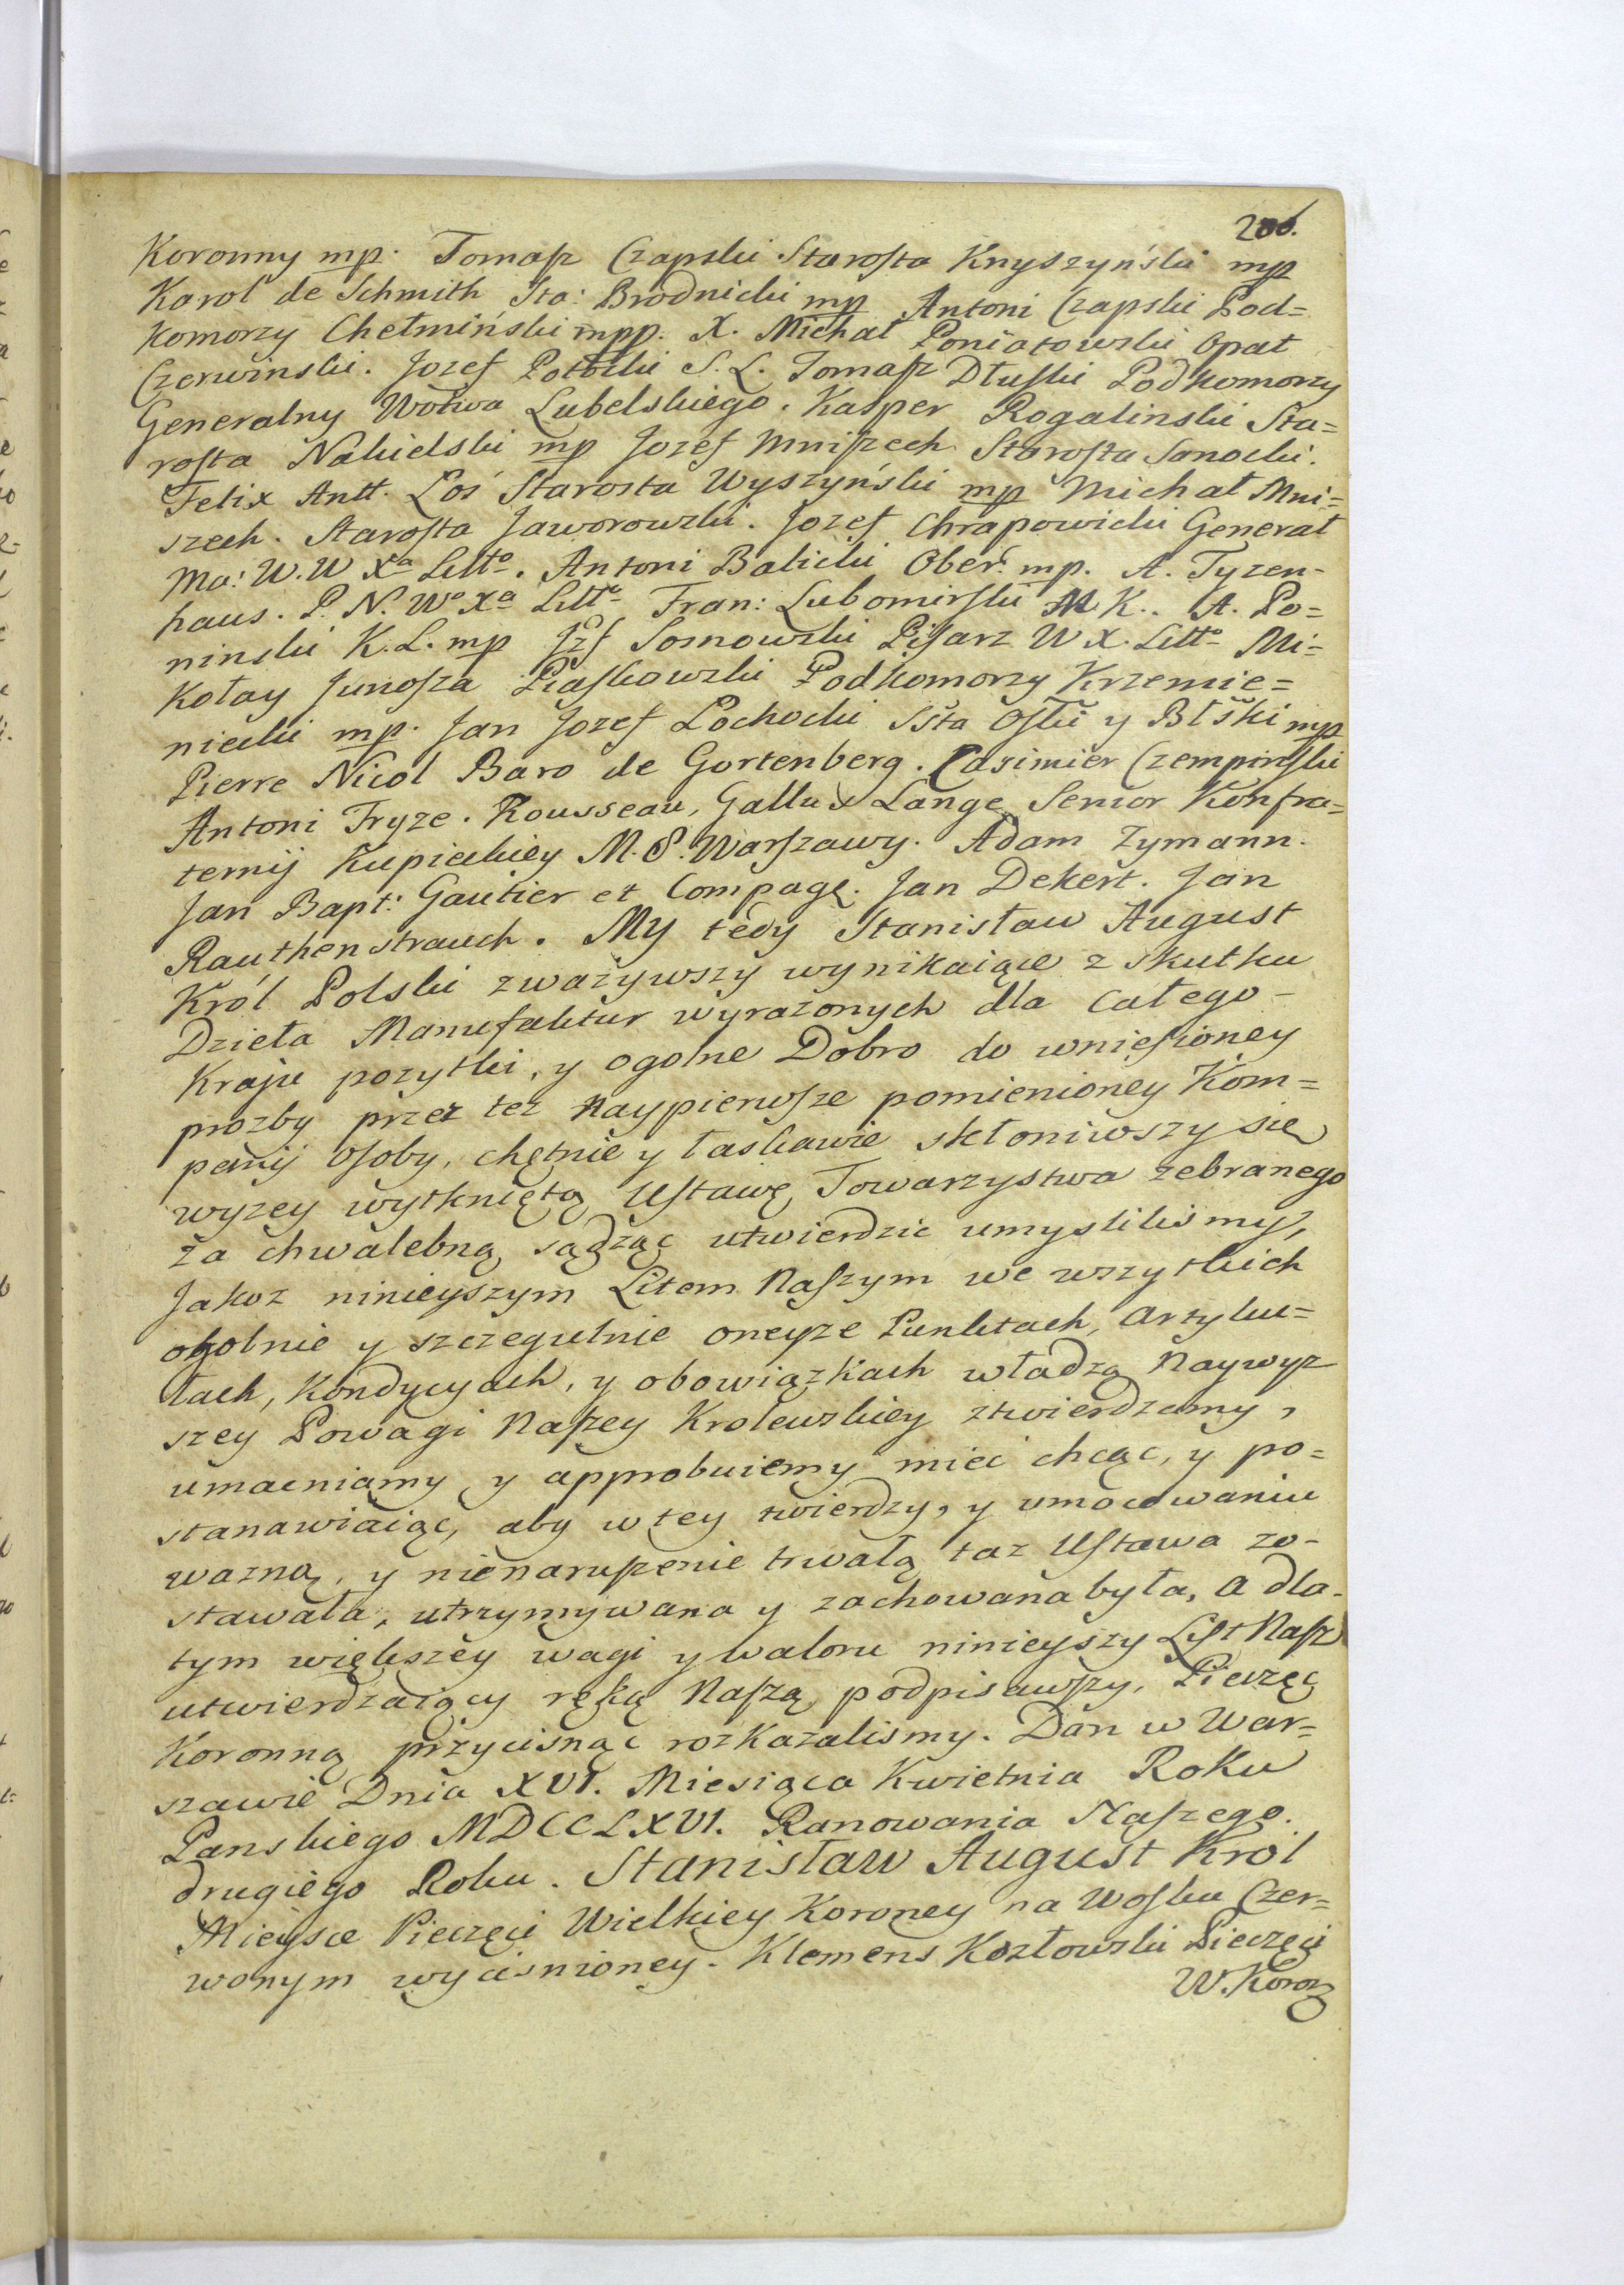 206.
Koronny mp. Tomasz Czapski Starosta Knyszyński mp
Karol de Schmith Sta: Brodnicki mp Antoni Czapski Pod=
komorzy Chełmiński mpp. X. Michał Poniatowski Opat
Czerwinski. Jozef Potocki S. L. Tomasz Dłuski Podkomorzy
Generalny Wotwa Lubelskiego. Kasper Rogalinski Sta=
rosta Nakielski mp Jozef Mniszech Starosta Sanocki.
Felix Antt. Łoś Starosta Wyszyński mp Michał Mni=
szech. Starosta Jaworowski. Jozef Chrapowicki Generał
Ma: W. W Xa Litto. Antoni Balicki Ober: mp. A. Tyzen-
haus. P. N. Wo Xa Litto Fran: Lubomirski M K.. A. Po=
ninski K. L. mp Jzf Sosnowski Pisarz W X. Litto Mi=
kołay Junosza Piaskowski Podkomorzy Krzemie=
niecki mp. Jan Jozef Łochocki Ssta Ośki y Błski mp
Pierre Nicol Baro de Gartenberg. Casimier Czempinski
Antoni Fryze. Rousseau, Gallux Lange Senior Konfra=
ternij Kupieckiey M. S. Warszawy. Adam Zymann.
Jan Bapt: Gautier et Compagę. Jan Dekert. Jan
Rauthenstrauch. My tedy Stanisław August
Król Polski zważywszy wynikaiące z skutku
Dzieła Manufaktur wyrażonych dla całego-
Kraju pozytki, y ogolne Dobro do wniesioney
prozby przez też Naypierwsze pomienioney Kom=
panij Osoby, chętnie y łaskawie skłoniwszy się
wyzey wytkniętą Ustawę Towarzystwa zebranego
za chwalebną sądząc utwierdzic umyslilismy,
Jakoz ninieyszym Litem Naszym we wszytkich
ogolnie y szczegulnie oneyze Punktach, Artyku=
łach, Kondycyach, y obowiązkach władzą Naywyz
szey Powagi Naszey Krolewskiey ztwierdzamy,
umacniamy y approbuiemy mieć chcąc, y po=
stanawiaiąc, aby w tey twierdzy, y umocowaniu
wazną, y nienaruszenie trwałą taz Ustawa zo-
stawała, utrzymywana y zachowana była, a dla-
tym większey wagi y waloru ninieyszy List Nasz
utwierdzaiący ręką Naszą podpisawszy, Pieczęć
Koronną przycisnąć rozkazalismy. Dan w War=
szawie Dnia XVI. Miesiąca Kwietnia Roku
Panskiego MDCCLXVI. Panowania Naszego.
drugiego Roku. Stanisław August Król
Mieysce Pieczęci Wielkiey Koroney na Wosku Czer=
wonym wyciśnioney. Klemens Kozłowski Pieczęci
W. Koron